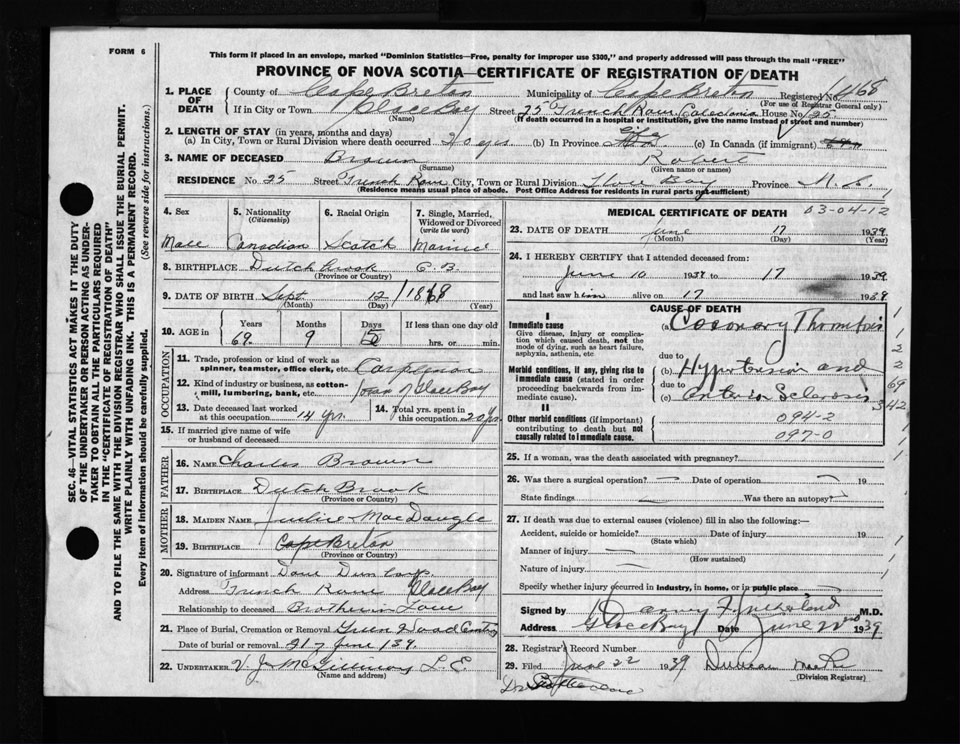 FORM 6
This form if placed in an envelope, marked "Dominion Statistics—Free, penalty for improper use $300," and properly addressed will pass through the mail "FREE"
PROVINCE OF NOVA SCOTIA—CERTIFICATE OF REGISTRATION OF DEATH
SEC. 46—VITAL STATISTICS ACT MAKES IT THE DUTY
OF THE UNDERTAKER OR PERSON ACTING AS UNDER-
TAKER TO OBTAIN ALL THE PARTICULARS REQUIRED
IN THE "CERTIFICATE OF REGISTRATION OF DEATH"
AND TO FILE THE SAME WITH THE DIVISION REGISTRAR WHO SHALL ISSUE THE BURIAL PERMIT.
WRITE PLAINLY WITH UNFADING INK. THIS IS A PERMANENT RECORD.
Every item of information should be carefully supplied.
(See reverse side for instructions.)
1. PLACE OF DEATH
County of Cape Breton Municipality of Cape Breton Registered No. 468
(For use of Registrar General only)
If in City or Town Glace Bay Street 25 French Row, Caledonia House No 25
(Name) (If death occurred in a hospital or institution, give the name instead of street and number)
2. LENGTH OF STAY (in years, months and days)
(a) In City, Town or Rural Division where death occurred 40 yrs (b) In Province Life (c) In Canada (if immigrant)
3. NAME OF DECEASED Brown Robert
(Surname) (Given name or names)
RESIDENCE No 25 Street French Row City, Town or Rural Division Glace Bay Province N.S.
(Residence means usual place of abode. Post Office Address for residents in rural parts not sufficient)
4. Sex Male
5. Nationality (Citizenship) Canadian
6. Racial Origin Scotch
7. Single, Married, Widowed or Divorced (write the word) Married
8. BIRTHPLACE Dutch Brook C. B.
(Province or Country)
9. DATE OF BIRTH Sept 12 1868
(Month) (Day) (Year)
10. AGE in Years Months Days If less than one day old
69 9 5 hrs. or min.
OCCUPATION
11. Trade, profession or kind of work as spinner, teamster, office clerk, etc.
12. Kind of industry or business, as cotton-mill, lumbering, bank, etc. Town of Glace Bay
13. Date deceased last worked at this occupation 14 Yrs.
14. Total yrs. spent in this occupation 20 Yrs
15. If married give name of wife or husband of deceased
FATHER
16. NAME Charles Brown
17. BIRTHPLACE Dutch Brook
(Province or Country)
MOTHER
18. MAIDEN NAME MacDougle
19. BIRTHPLACE Cape Breton
(Province or Country)
20. Signature of informant Dan Dunlap
Address French Row Glace Bay
Relationship to deceased Brother in Law
21. Place of Burial, Cremation or Removal Green Wood Cemetry
Date of burial or removal June 39.
22. UNDERTAKER V. J. McGillivray L. E.
(Name and address)
MEDICAL CERTIFICATE OF DEATH 03-04-12
23. DATE OF DEATH June 17 1939
(Month) (Day) (Year)
24. I HEREBY CERTIFY that I attended deceased from:
June 10 1939 to 17 1939
and last saw him alive on 17 1939
CAUSE OF DEATH
I
Immediate cause
Give disease, injury or complication which caused death, not the mode of dying, such as heart failure, asphyxia, asthenia, etc
(a) Coronary Thrombosis
due to
Morbid conditions, if any, giving rise to immediate cause (stated in order proceeding backwards from immediate cause).
(b) Hypertension and
due to
(c) Sclerosis
II
Other morbid conditions (if important) contributing to death but not causally related to immediate cause.
094-2
097-0
1
1
2
2
69
342
1
25. If a woman, was the death associated with pregnancy?
26. Was there a surgical operation? — Date of operation — 19
State findings Was there an autopsy?
27. If death was due to external causes (violence) fill in also the following:—
Accident, suicide or homicide? Date of injury 19
(State which)
Manner of injury —
(How sustained)
Nature of injury —
Specify whether injury occurred in industry, in home, or in public place
Signed by Sutherland M.D.
Address Glace Bay Date June 22nd 1939
28. Registrar's Record Number
29. Filed June 22 1939 Duncan
(Division Registrar)